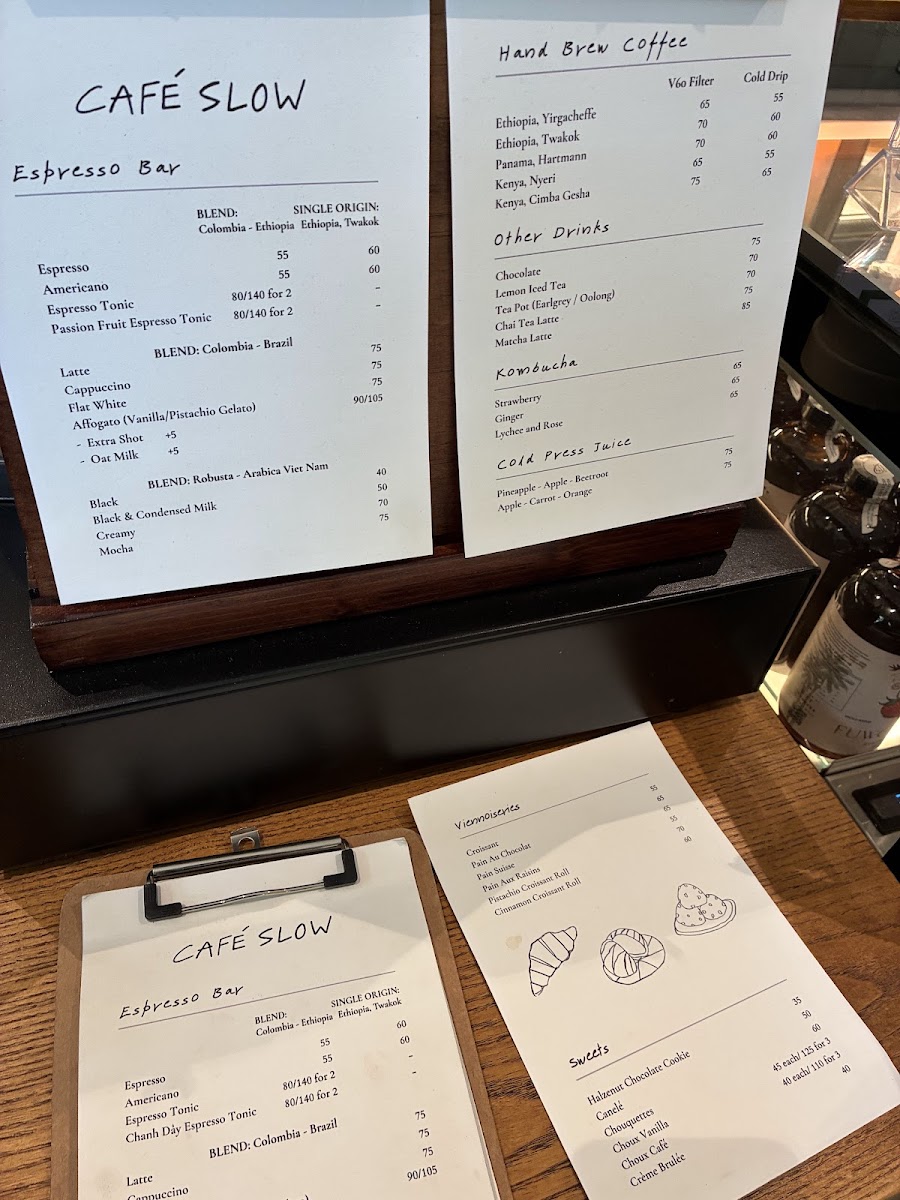 CAFÉ SLOW
Espresso Bar
BLEND: SINGLE ORIGIN:
Colombia - Ethiopia Ethiopia, Twakok
Espresso 55 60
Americano 55 60
Espresso Tonic 80/140 for 2 –
Passion Fruit Espresso Tonic 80/140 for 2 –
BLEND: Colombia - Brazil
Latte 75
Cappuccino 75
Flat White 75
Affogato (Vanilla/Pistachio Gelato) 90/105
- Extra Shot +5
- Oat Milk +5
BLEND: Robusta - Arabica Viet Nam
Black 40
Black & Condensed Milk 50
Creamy 70
Mocha 75
Hand Brew Coffee
V60 Filter Cold Drip
Ethiopia, Yirgacheffe 65 55
Ethiopia, Twakok 70 60
Panama, Hartmann 70 60
Kenya, Nyeri 65 55
Kenya, Cimba Gesha 75 65
Other Drinks
Chocolate 75
Lemon Iced Tea 70
Tea Pot (Earlgrey / Oolong) 70
Chai Tea Latte 75
Matcha Latte 85
Kombucha
Strawberry 65
Ginger 65
Lychee and Rose 65
Cold Press Juice
Pineapple - Apple - Beetroot 75
Apple - Carrot - Orange 75
CAFÉ SLOW
Espresso Bar
BLEND: SINGLE ORIGIN:
Colombia - Ethiopia Ethiopia, Twakok
Espresso 55 60
Americano 55 60
Espresso Tonic 80/140 for 2 –
Chanh Dây Espresso Tonic 80/140 for 2 –
BLEND: Colombia - Brazil
Latte 75
Cappuccino 75
75
90/105
Viennoiseries
Croissant 55
Pain Au Chocolat 65
Pain Suisse 65
Pain Aux Raisins 55
Pistachio Croissant Roll 70
Cinnamon Croissant Roll 60
Sweets
Halzenut Chocolate Cookie 35
Canelé 50
Chouquettes 60
Choux Vanilla 45 each/ 125 for 3
Choux Café 40 each/ 110 for 3
Crème Brulée 40